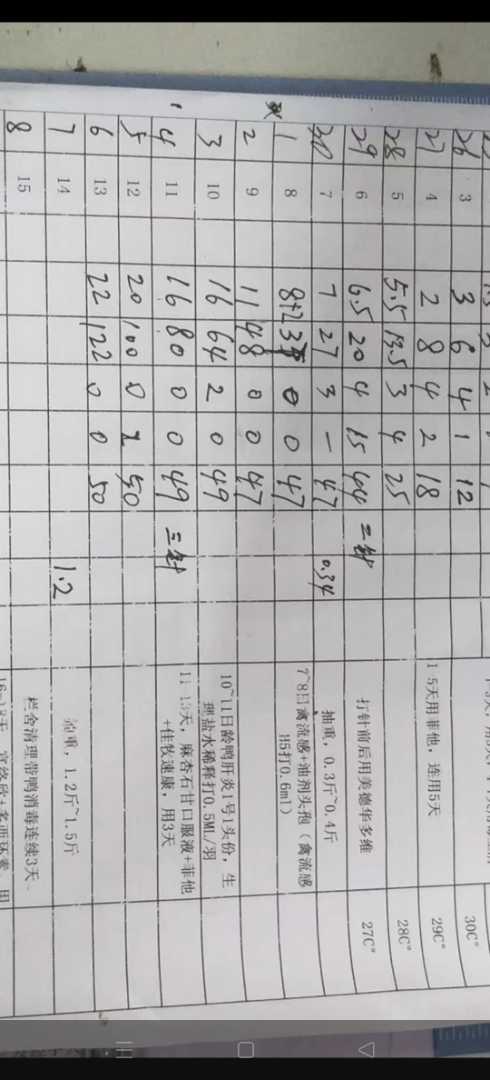 26 3 3 6 4 1 12 30C°
27 4 2 8 4 2 18 1-5天用菲他，连用5天 29C°
28 5 5.5 13.5 3 4 25 28C°
29 6 6.5 20 4 15 44 二针 打针前后用美德华多维 27C°
30 7 7 27 3 一 47 0.34 抽重，0.3斤~0.4斤
1 8 8+2 0 0 47 7~8日禽流感+油剂头孢（禽流感
H5打0.6ml）
2 9 11 48 0 0 47
3 10 16 64 2 0 49 10~11日龄鸭肝炎1号1头份，生
理盐水稀释打0.5ML/羽
4 11 16 80 0 0 49 三针 11-13天，麻杏石甘口服液+菲他
+佳牧速康，用3天
5 12 20 100 0 2 50
6 13 22 122 0 0 50
7 14 1.2 抽重，1.2斤~1.5斤
8 15 栏舍清理带鸭消毒连续3天、